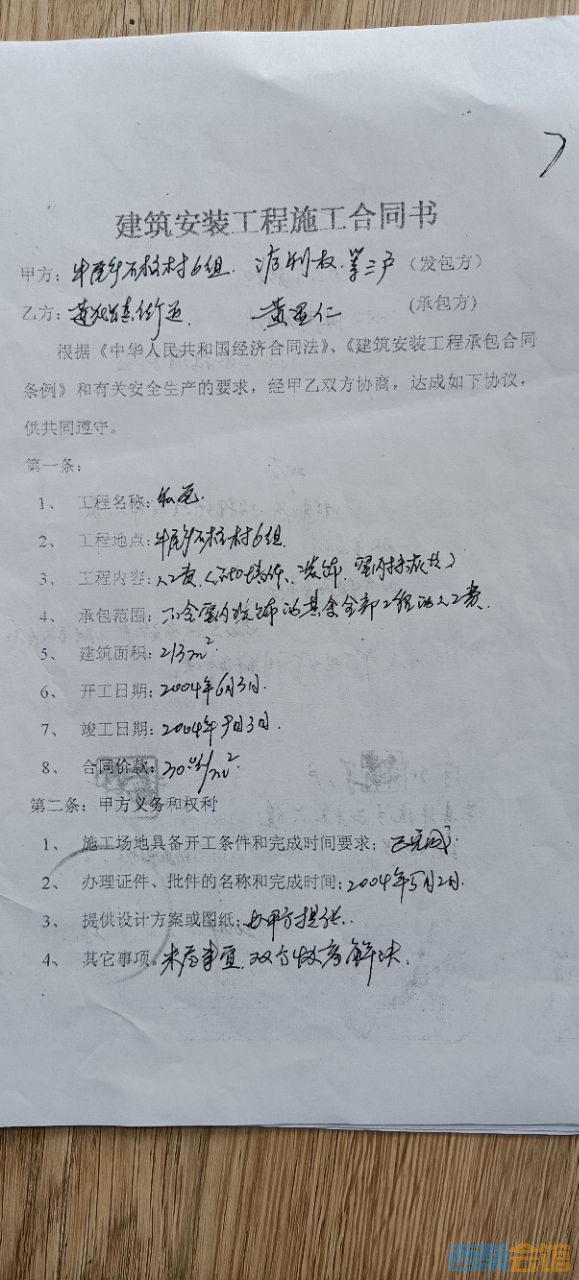 建筑安装工程施工合同书
甲方：牛尾乡石柱村6组. 权.等三户（发包方）
乙方：镇街道. 黄 仁（承包方）
根据《中华人民共和国经济合同法》、《建筑安装工程承包合同
条例》和有关安全生产的要求，经甲乙双方协商，达成如下协议，
供共同遵守。
第一条：
1、工程名称：私宅.
2、工程地点：牛尾乡石柱村6组.
3、工程内容：人工费
4、承包范围：不含室内装饰的其余全部工程的人工费.
5、建筑面积：213m².
6、开工日期：2004年6月3日.
7、竣工日期：2004年9月3日.
8、合同价款：30元/m².
第二条：甲方义务和权利
1、施工场地具备开工条件和完成时间要求：已完成.
2、办理证件、批件的名称和完成时间：2004年5月2日.
3、提供设计方案或图纸：由甲方提供.
4、其它事项。未尽事宜.双方协商解决.
西祠会馆